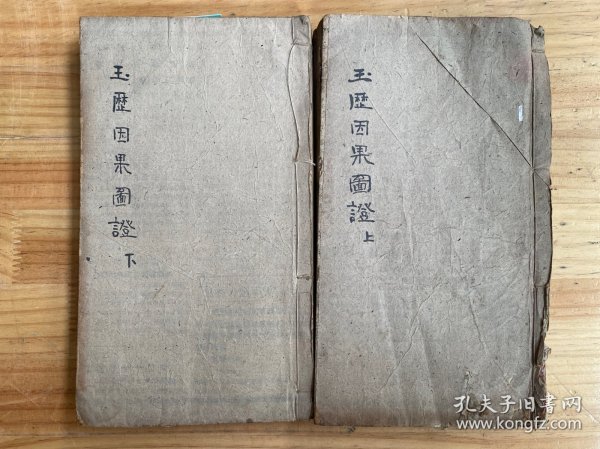 玉歷因果圖證
上
玉歷因果圖證
下
孔夫子旧书网
www.kongfz.com